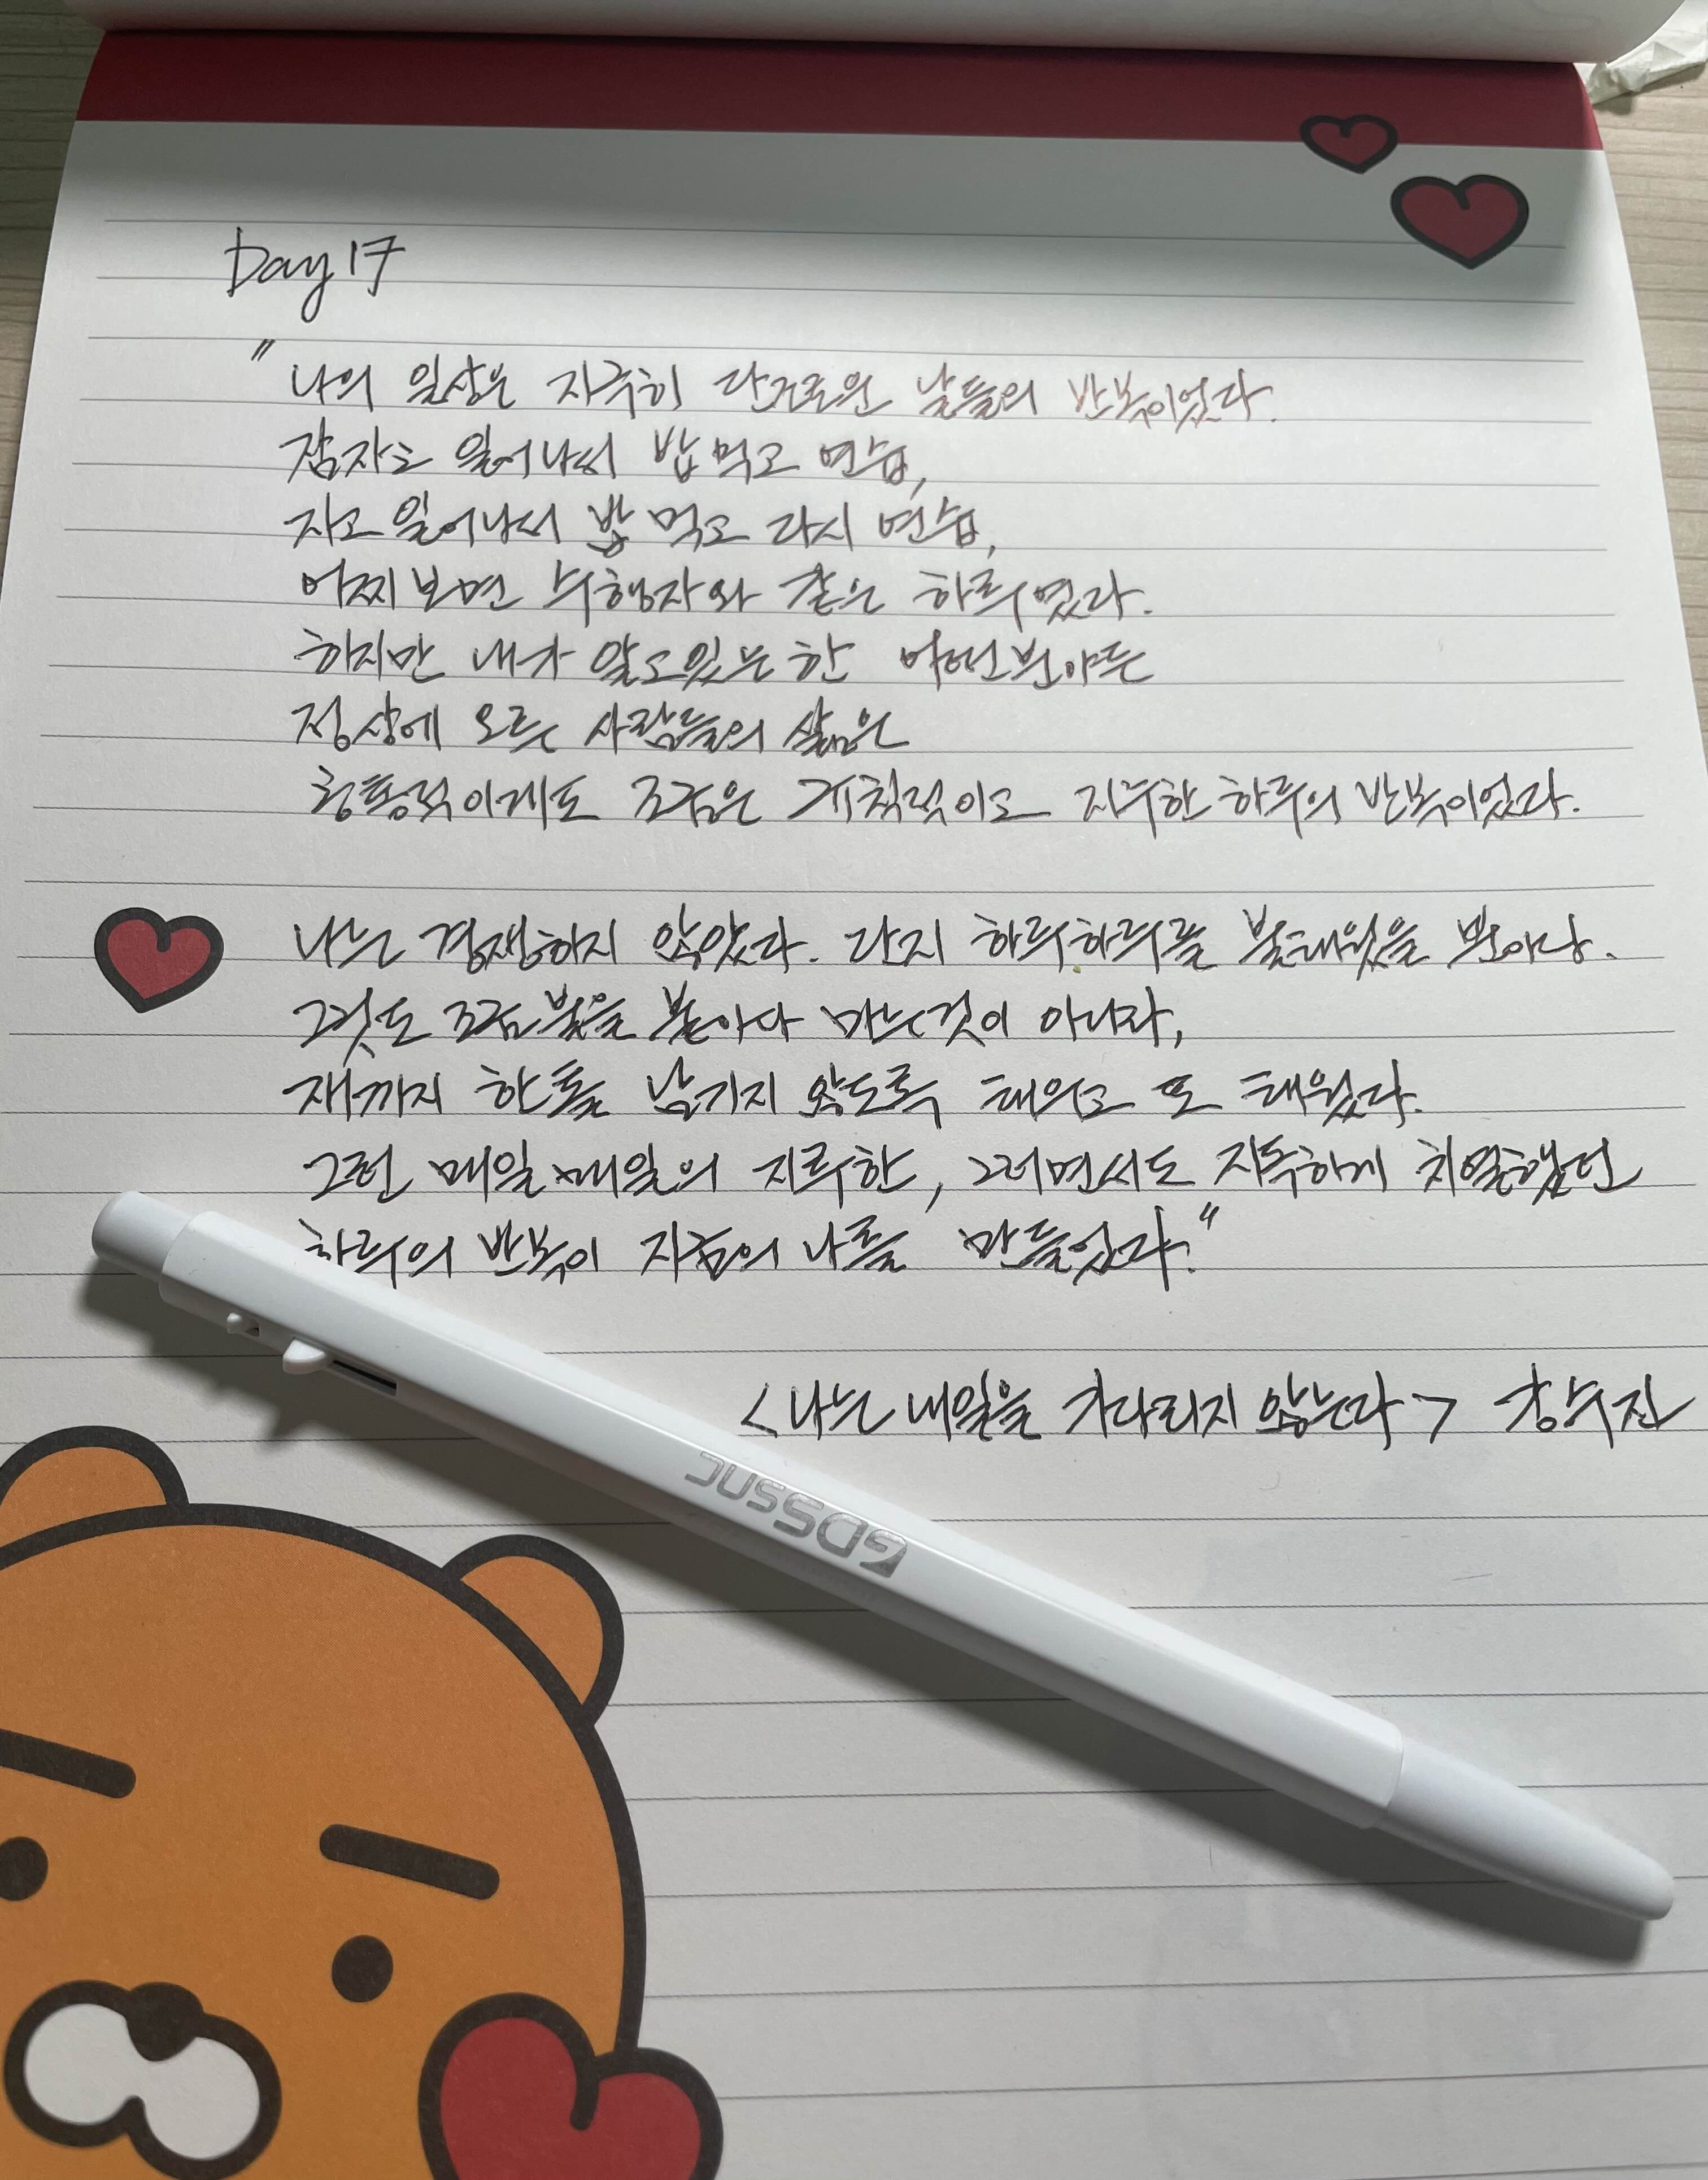 Day 17
"나의 일상은 지극히 단조로운 날들의 반복이었다.
잠자고 일어나서 밥 먹고 연습,
자고 일어나서 밥 먹고 다시 연습,
어찌보면 수행자와 같은 하루였다.
하지만 내가 알고있는 한 어떤분야든
정상에 오른 사람들의 삶은
공통적이게도 조금은 규칙적이고 지루한 하루의 반복이었다.
나는 경쟁하지 않았다. 단지 하루하루를 불태웠을 뿐이다.
그것도 조금 불을 붙이다 마는것이 아니라,
재까지 한톨 남기지 않도록 태우고 또 태웠다.
그런 매일매일의 지루한, 그러면서도 지독하게 치열했던
하루의 반복이 지금의 나를 만들었다."
<나는 내일을 기다리지 않는다> 강수진
GDSsnc